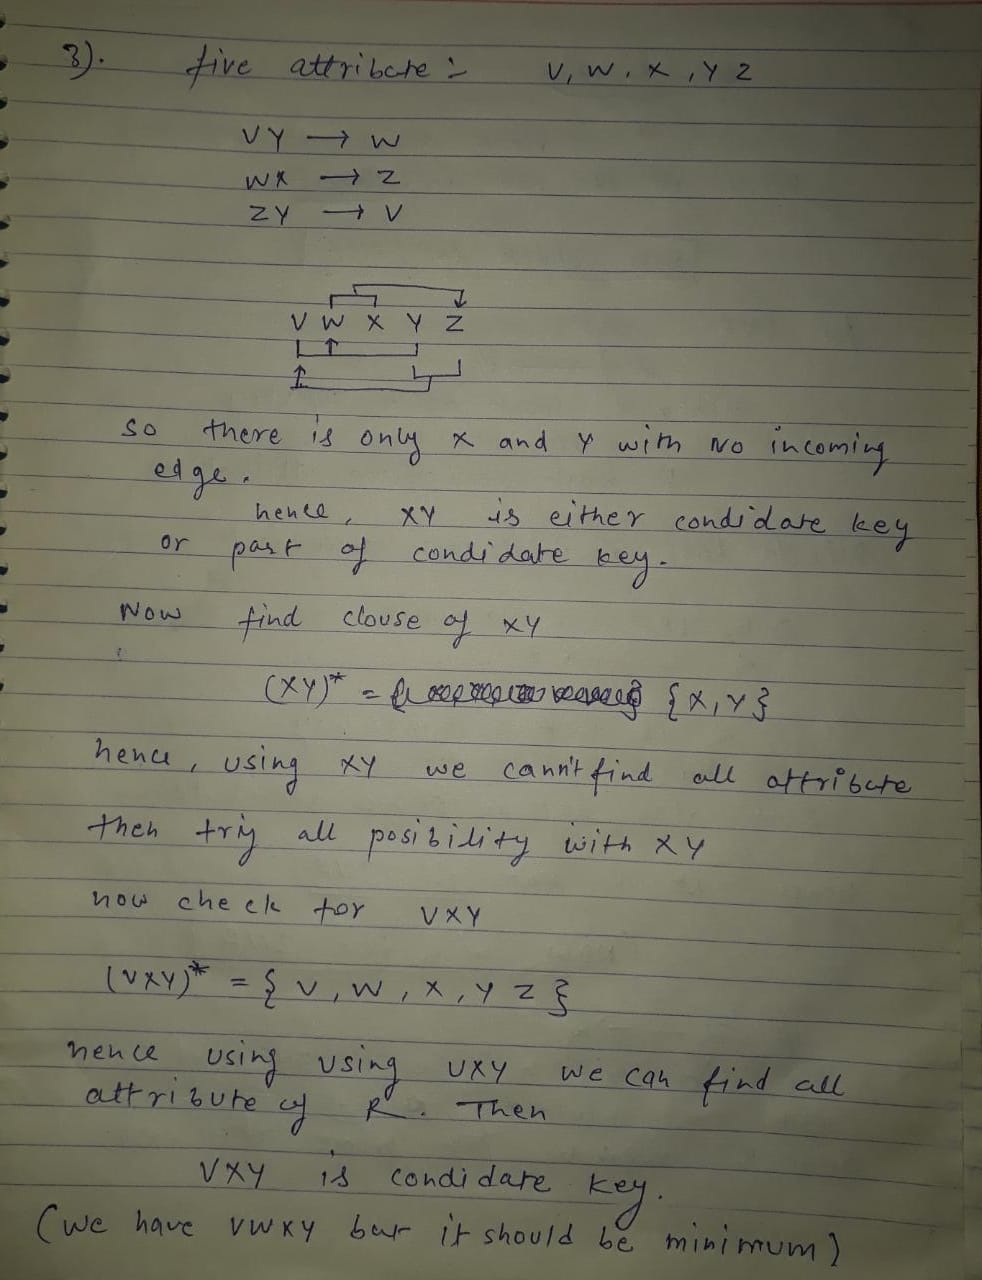 3). five attribute :- V, W. X, Y Z
VY → W
WX → Z
ZY → V
V W X Y Z
so there is only X and Y with No incoming
edge.
hence, XY is either condidate key
or part of condidate key.
Now find clouse of XY
(XY)* = {X, Y}
hence, using XY we cann't find all attribute
then triy all posibility with XY
now check for VXY
(VXY)* = { V, W, X, Y Z }
hence using using VXY we can find all
attribute of R. Then
VXY is condidate key.
(we have VWXY but it should be minimum)